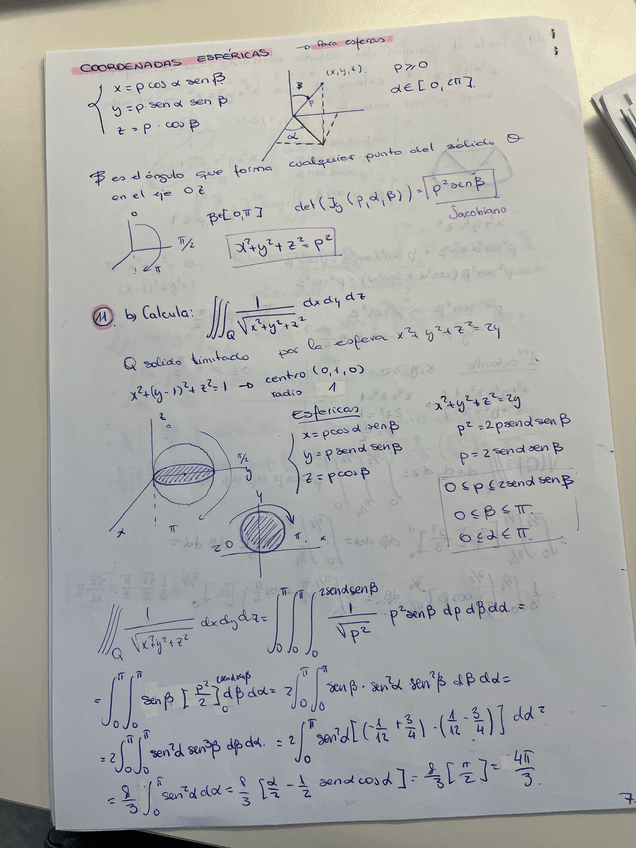 COORDENADAS ESFÉRICAS → Para esferas
x = ρ cos α sen β
y = ρ sen α sen β
z = ρ · cos β
(x,y,z)
β
ρ
α
ρ ≥ 0
α ∈ [0, 2π]
β es el ángulo que forma cualquier punto del sólido Q
en el eje OZ
0
π/2
π
β ∈ [0, π]
det(J_g(ρ, α, β)) = ρ² sen β
Jacobiano
x² + y² + z² = ρ²
11 b) Calcula: ∭_Q 1/√(x²+y²+z²) dx dy dz
Q solido limitado por la esfera x² + y² + z² = 2y
x² + (y-1)² + z² = 1 → centro (0,1,0)
radio 1
Esfericas
x = ρ cos α sen β
y = ρ sen α sen β
z = ρ cos β
x² + y² + z² = 2y
ρ² = 2ρ sen α sen β
ρ = 2 sen α sen β
0 ≤ ρ ≤ 2 sen α sen β
0 ≤ β ≤ π.
0 ≤ α ≤ π.
z
0
π/2
y
x
π
y
π.
x
∭_Q 1/√(x²+y²+z²) dx dy dz = ∫_0^π ∫_0^π ∫_0^{2 sen α sen β} 1/√ρ² · ρ² sen β dρ dβ dα =
= ∫_0^π ∫_0^π sen β [ρ²/2]_0^{2 sen α sen β} dβ dα = 2 ∫_0^π ∫_0^π sen β · sen² α sen² β dβ dα =
= 2 ∫_0^π ∫_0^π sen² α sen³ β dβ dα. = 2 ∫_0^π sen² α [(-1/12 + 3/4) · (1/12 - 3/4)] dα =
= 8/3 ∫_0^π sen² α dα = 8/3 [α/2 - 1/2 sen α cos α] = 8/3 [π/2] = 4π/3.
7